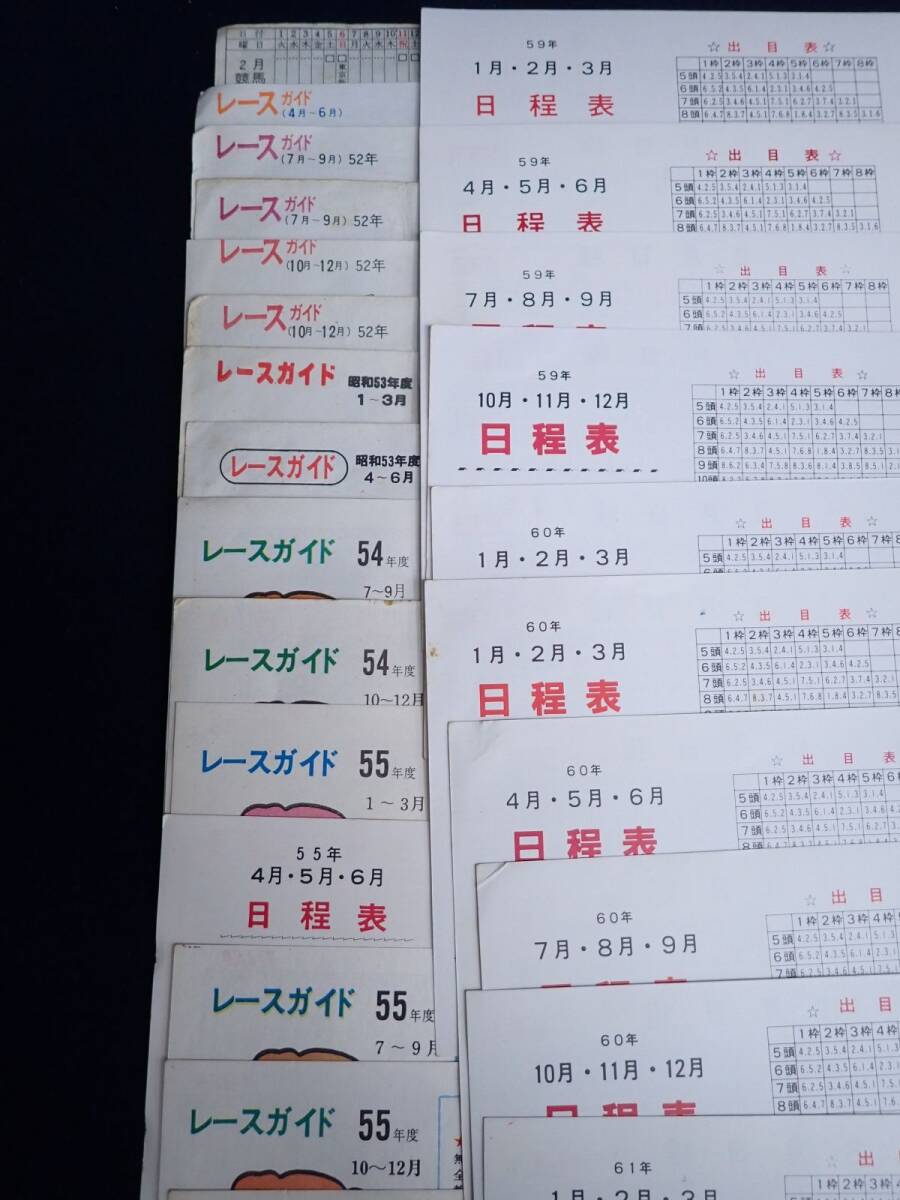 日付 1 2 3 4 5 6 7 8 9 10 11 12
曜日 火 水 木 金 土 日 月 火 水 木 祝 土
2月
競馬
レースガイド
(4月~6月)
レースガイド
(7月~9月) 52年
レースガイド
(7月~9月) 52年
レースガイド
(10月~12月) 52年
レースガイド
(10月~12月) 52年
レースガイド 昭和53年度
1~3月
レースガイド 昭和53年度
4~6月
レースガイド 54年度
7~9月
レースガイド 54年度
10~12月
レースガイド 55年度
1~3月
55年
4月・5月・6月
日程表
レースガイド 55年度
7~9月
レースガイド 55年度
10~12月
59年
1月・2月・3月
日程表
☆出目表☆
1枠 2枠 3枠 4枠 5枠 6枠 7枠 8枠
5頭 4.2.5 3.5.4 2.4.1 5.1.3 3.1.4
6頭 6.5.2 4.3.5 6.1.4 2.3.1 3.4.6 4.2.5
7頭 6.2.5 3.4.6 4.5.1 7.5.1 6.2.7 3.7.4 3.2.1
8頭 6.4.7 8.3.7 4.5.1 7.6.8 1.8.4 3.2.7 8.3.5 3.1.6
59年
4月・5月・6月
日程表
☆出目表☆
1枠 2枠 3枠 4枠 5枠 6枠 7枠 8枠
5頭 4.2.5 3.5.4 2.4.1 5.1.3 3.1.4
6頭 6.5.2 4.3.5 6.1.4 2.3.1 3.4.6 4.2.5
7頭 6.2.5 3.4.6 4.5.1 7.5.1 6.2.7 3.7.4 3.2.1
8頭 6.4.7 8.3.7 4.5.1 7.6.8 1.8.4 3.2.7 8.3.5 3.1.6
59年
7月・8月・9月
日程表
☆出目表☆
1枠 2枠 3枠 4枠 5枠 6枠 7枠 8枠
5頭 4.2.5 3.5.4 2.4.1 5.1.3 3.1.4
6頭 6.5.2 4.3.5 6.1.4 2.3.1 3.4.6 4.2.5
7頭 6.2.5 3.4.6 4.5.1 7.5.1 6.2.7 3.7.4 3.2.1
59年
10月・11月・12月
日程表
☆出目表☆
1枠 2枠 3枠 4枠 5枠 6枠 7枠 8枠
5頭 4.2.5 3.5.4 2.4.1 5.1.3 3.1.4
6頭 6.5.2 4.3.5 6.1.4 2.3.1 3.4.6 4.2.5
7頭 6.2.5 3.4.6 4.5.1 7.5.1 6.2.7 3.7.4 3.2.1
8頭 6.4.7 8.3.7 4.5.1 7.6.8 1.8.4 3.2.7 8.3.5
9頭 8.6.2 6.3.4 7.5.8 8.3.6 8.1.4 3.8.5 8.5.1
10頭
60年
1月・2月・3月
☆出目表☆
1枠 2枠 3枠 4枠 5枠 6枠 7枠
5頭 4.2.5 3.5.4 2.4.1 5.1.3 3.1.4
6頭
60年
1月・2月・3月
日程表
☆出目表☆
1枠 2枠 3枠 4枠 5枠 6枠 7枠
5頭 4.2.5 3.5.4 2.4.1 5.1.3 3.1.4
6頭 6.5.2 4.3.5 6.1.4 2.3.1 3.4.6 4.2.5
7頭 6.2.5 3.4.6 4.5.1 7.5.1 6.2.7 3.7.4 3.2.1
8頭 6.4.7 8.3.7 4.5.1 7.6.8 1.8.4 3.2.7 8.3.5
60年
4月・5月・6月
日程表
☆出目表
1枠 2枠 3枠 4枠 5枠 6枠
5頭 4.2.5 3.5.4 2.4.1 5.1.3 3.1.4
6頭 6.5.2 4.3.5 6.1.4 2.3.1 3.4.6
7頭 6.2.5 3.4.6 4.5.1 7.5.1 6.2.7
8頭
60年
7月・8月・9月
☆出目
1枠 2枠 3枠 4枠
5頭 4.2.5 3.5.4 2.4.1 5.1.3
6頭 6.5.2 4.3.5 6.1.4 2.3.1
7頭 6.2.5 3.4.6 4.5.1 7.5.1
60年
10月・11月・12月
日程表
☆出目
1枠 2枠 3枠 4枠
5頭 4.2.5 3.5.4 2.4.1 5.1.3
6頭 6.5.2 4.3.5 6.1.4 2.3.1
7頭 6.2.5 3.4.6 4.5.1
8頭 6.4.7 8.3.7 4.5.1 7.6
61年
1月・2月・3月
☆出目
1枠 2枠 3枠 4
5頭 4.2.5 3.5.4 2.4.1